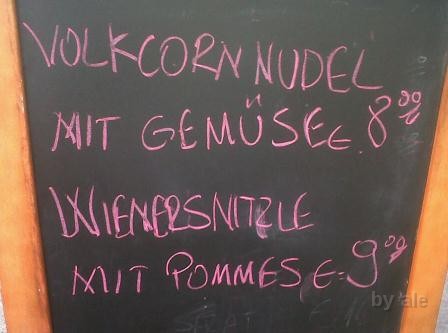 VOLKCORN NUDEL
MIT GEMÜSE € 8,00
WIENERSNITZLE
MIT POMMES €=9,00
by ale